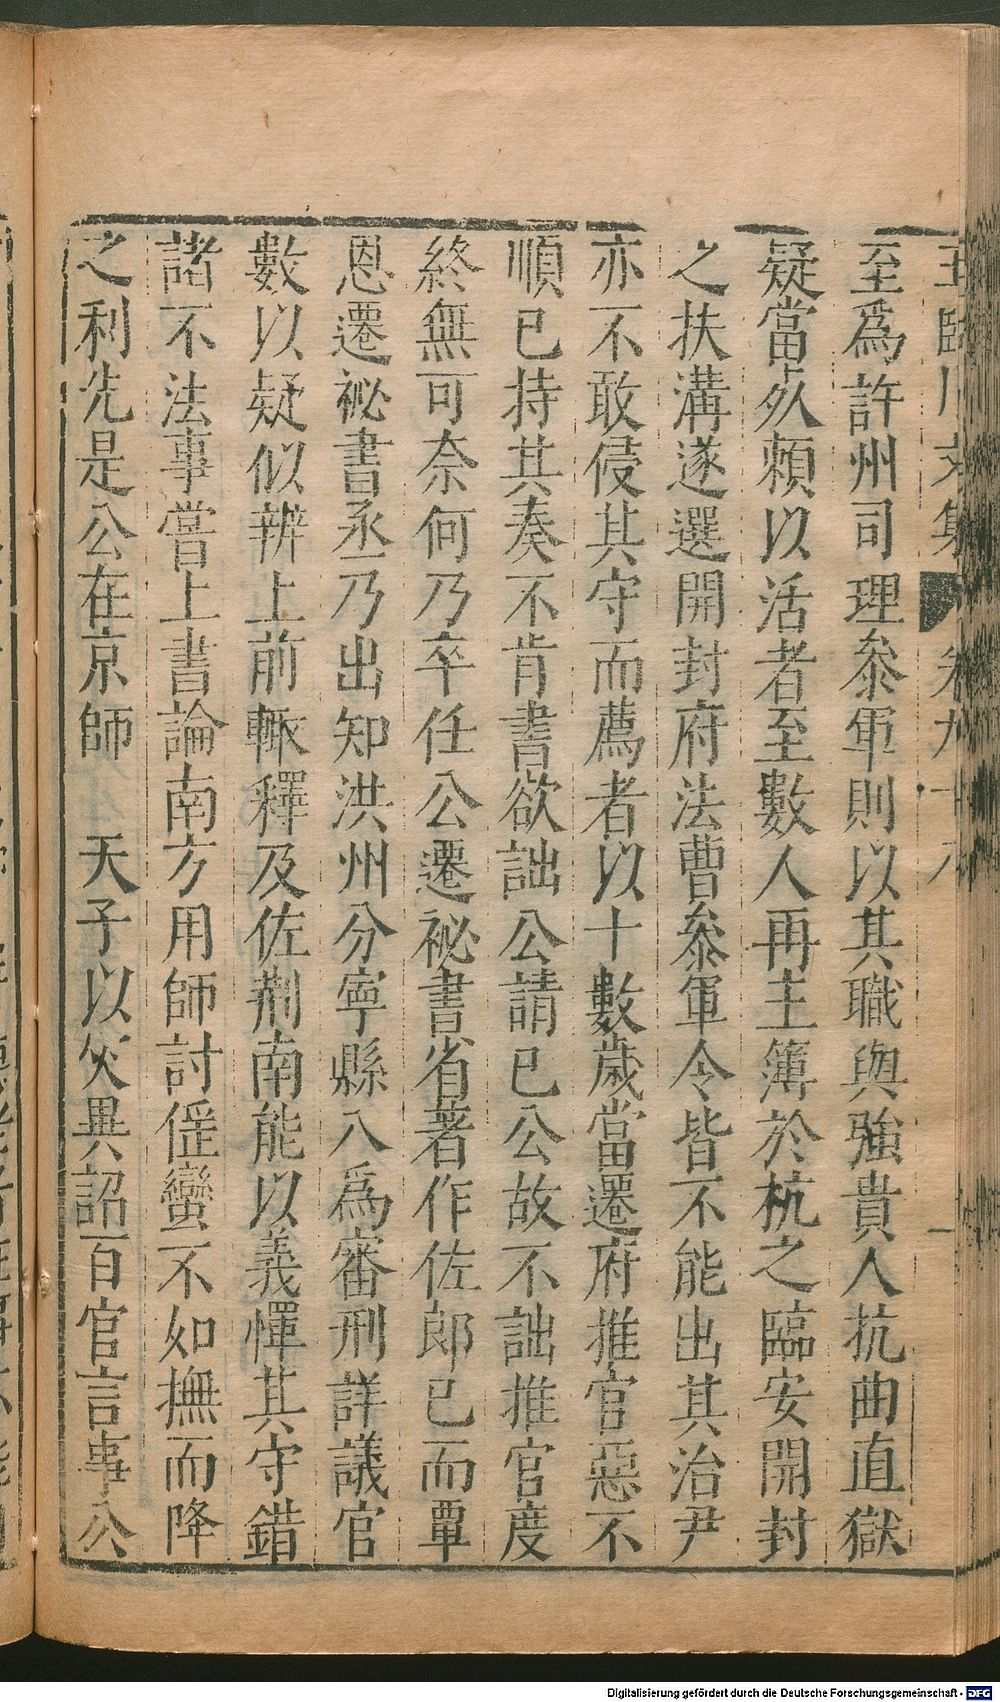 王臨川文集 卷九十八 一
至爲許州司理叅軍則以其職與強貴人抗曲直獄
疑當久頼以活者至數人再主簿於杭之臨安開封
之扶溝遂選開封府法曹叅軍令皆不能出其治尹
亦不敢侵其守而薦者以十數歲當遷府推官惡不
順已持其奏不肯書欲詘公請已公故不詘推官度
終無可奈何乃卒任公遷祕書省著作佐郎已而覃
恩遷祕書丞乃出知洪州分寧縣入爲審刑詳議官
數以疑似辨上前輙釋及佐荆南能以義憚其守錯
諸不法事嘗上書論南方用師討傜蠻不如撫而降
之利先是公在京師 天子以災異詔百官言事公
Digitalisierung gefördert durch die Deutsche Forschungsgemeinschaft - DFG